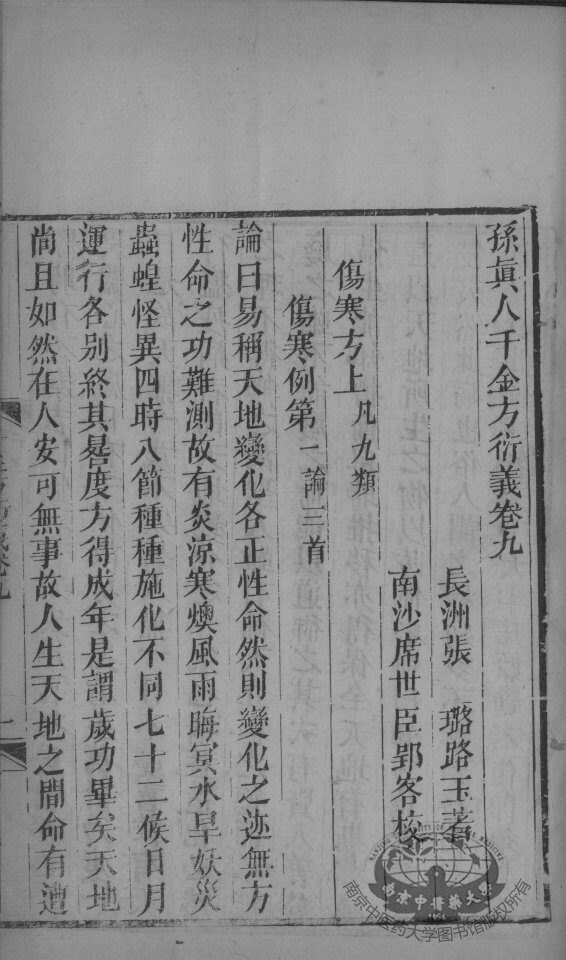 孫眞人千金方衍義卷九
長洲張　璐路玉著
南沙席世臣郢客校
傷寒方上凡九類
傷寒例第一論三首
論曰易稱天地變化各正性命然則變化之迹無方
性命之功難測故有炎涼寒燠風雨晦冥水旱妖災
蟲蝗怪異四時八節種種施化不同七十二候日月
運行各别終其晷度方得成年是謂歲功畢矣天地
尚且如然在人安可無事故人生天地之間命有遭
南京中醫藥大學
南京中医药大学图书馆版权所有